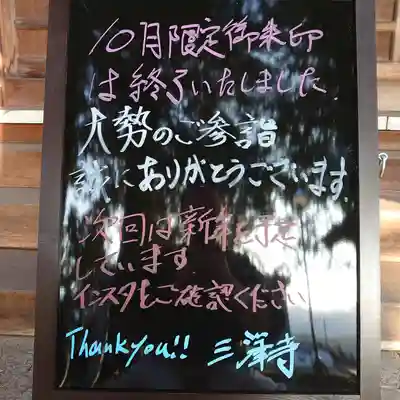 10月限定御朱印
は終了いたしました
大勢のご参詣
誠にありがとうございます
次回は新年を予定
しています
インスタをご確認ください
Thank you!! 三澤寺